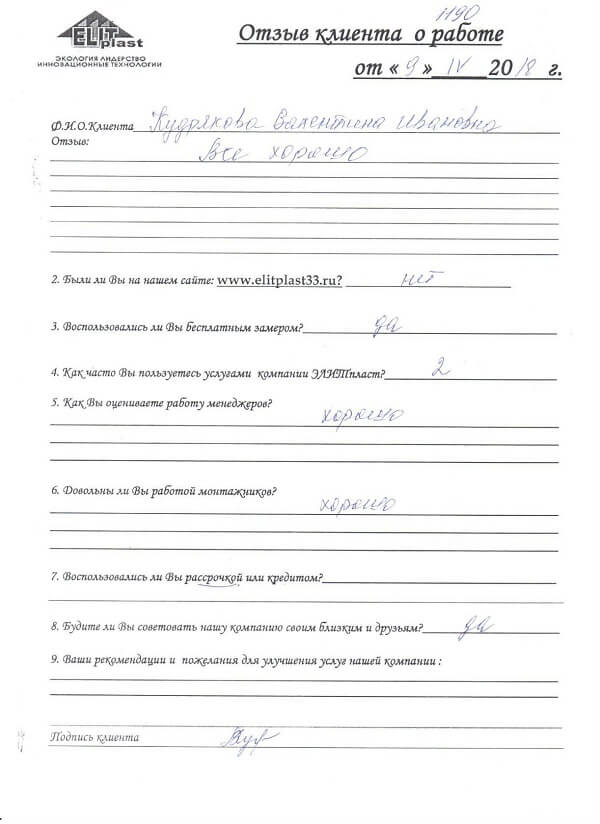 1190
ELIT plast
ЭКОЛОГИЯ ЛИДЕРСТВО
ИННОВАЦИОННЫЕ ТЕХНОЛОГИИ
Отзыв клиента о работе
от « 9 » IV 2018 г.
Ф.И.О.Клиента Кудрякова Валентина Ивановна
Отзыв: Все хорошо
2. Были ли Вы на нашем сайте: www.elitplast33.ru? нет
3. Воспользовались ли Вы бесплатным замером? да
4. Как часто Вы пользуетесь услугами компании ЭЛИТпласт? 2
5. Как Вы оцениваете работу менеджеров? хорошо
6. Довольны ли Вы работой монтажников? хорошо
7. Воспользовались ли Вы рассрочкой или кредитом?
8. Будите ли Вы советовать нашу компанию своим близким и друзьям? да
9. Ваши рекомендации и пожелания для улучшения услуг нашей компании :
Подпись клиента Куд